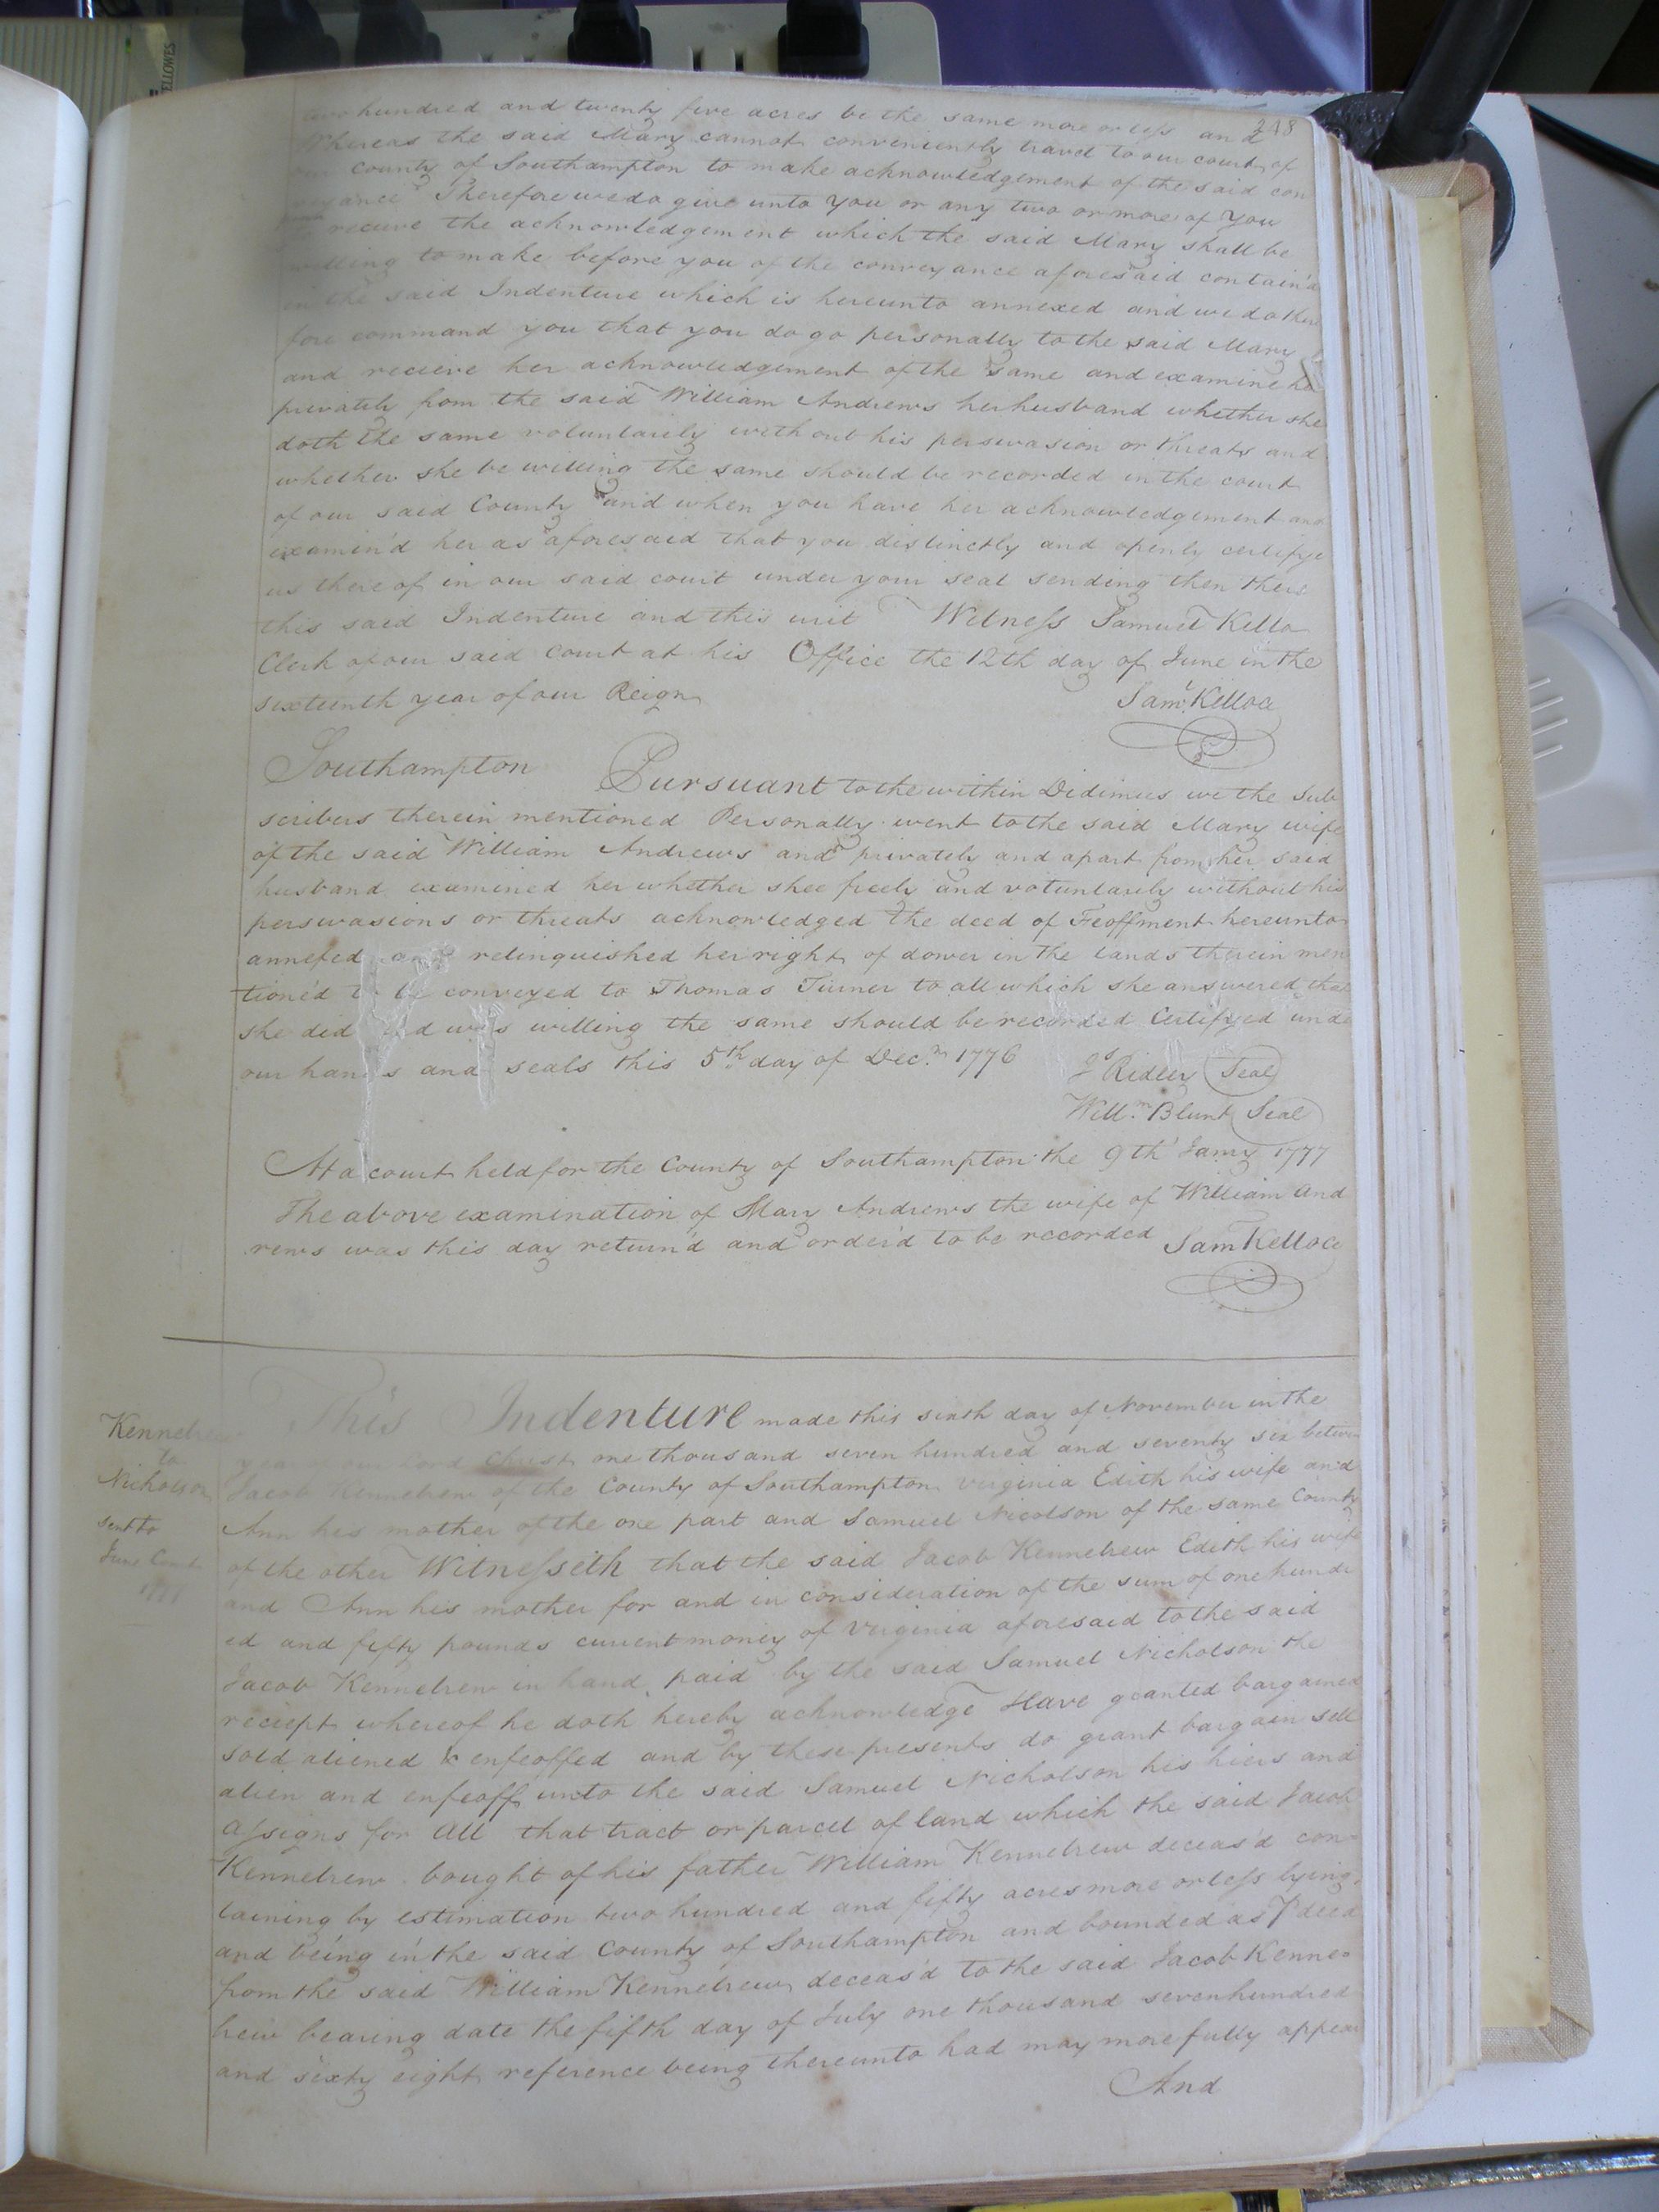 FELLOWES
248
two hundred and twenty five acres be the same more or less and
Whereas the said Mary cannot conveniently travel to our court of
our County of Southampton to make acknowledgement of the said con
veyance Therefore we do give unto you or any two or more of you
to receive the acknowledgement which the said Mary shall be
willing to make before you of the conveyance aforesaid contain'd
in the said Indenture which is hereunto annexed and we do there
fore command you that you do go personally to the said Mary
and recieve her acknowledgement of the same and examine her
privately from the said William Andrews her husband whether she
doth the same voluntarily without his perswasion or threats and
whether she be willing the same should be recorded in the court
of our said County and when you have her acknowledgement and
examin'd her as aforesaid that you distinctly and openly certifye
us there of in our said court under your seal sending then there
this said Indenture and this writ Witness Samuel Kello
Clerk of our said court at his Office the 12th day of June in the
sixteenth year of our Reign
Saml. Kelloe
Southampton Pursuant to the within Didimus we the Sub
scribers therein mentioned Personally went to the said Mary wife
of the said William Andrews and privately and apart from her said
husband examined her whether shee freely and voluntarily without his
perswasions or threats acknowledged the deed of Feoffment hereunto
annexed and relinquished her right of dower in the lands therein men
tion'd to be conveyed to Thomas Turner to all which she answered that
she did and was willing the same should be recorded Certifyed unde
our hands and seals this 5th day of Decr. 1776
Js Ridley Seal
Willm. Blunt Seal
At a court held for the County of Southampton the 9th Jany 1777
The above examination of Mary Andrews the wife of William And
rews was this day return'd and order'd to be recorded Sam Kelloe
Kennebrew
to
Nicholson
sent to
June Court
This Indenture made this sixth day of November in the
year our Lord Christ one thousand seven hundred and seventy six between
Jacob Kennebrew of the County of Southampton Virginia Edith his wife and
Ann his mother of the one part and Samuel Nicolson of the same County
of the other Witnesseth that the said Jacob Kennebrew Edith his wife
and Ann his mother for and in consideration of the sum of one hundr
ed and fifty pounds current money of Virginia aforesaid to the said
Jacob Kennebrew in hand paid by the said Samuel Nicholson the
reciept whereof he doth hereby acknowledge Have granted bargained
sold aliened & enfeoffed and by these presents do grant bargain sell
alien and enfeoff unto the said Samuel Nicholson his hiers and
assigns for All that tract or parcel of land which the said Jacob
Kennebrew bought of his father William Kennebrew deceas'd con-
taining by estimation two hundred and fifty acres more or less lying
and being in the said County of Southampton and bounded as P deed
from the said William Kennebrew deceas'd to the said Jacob Kenne=
brew bearing date the fifth day of July one thousand seven hundred
and sixty eight reference being thereunto had may more fully appear
And